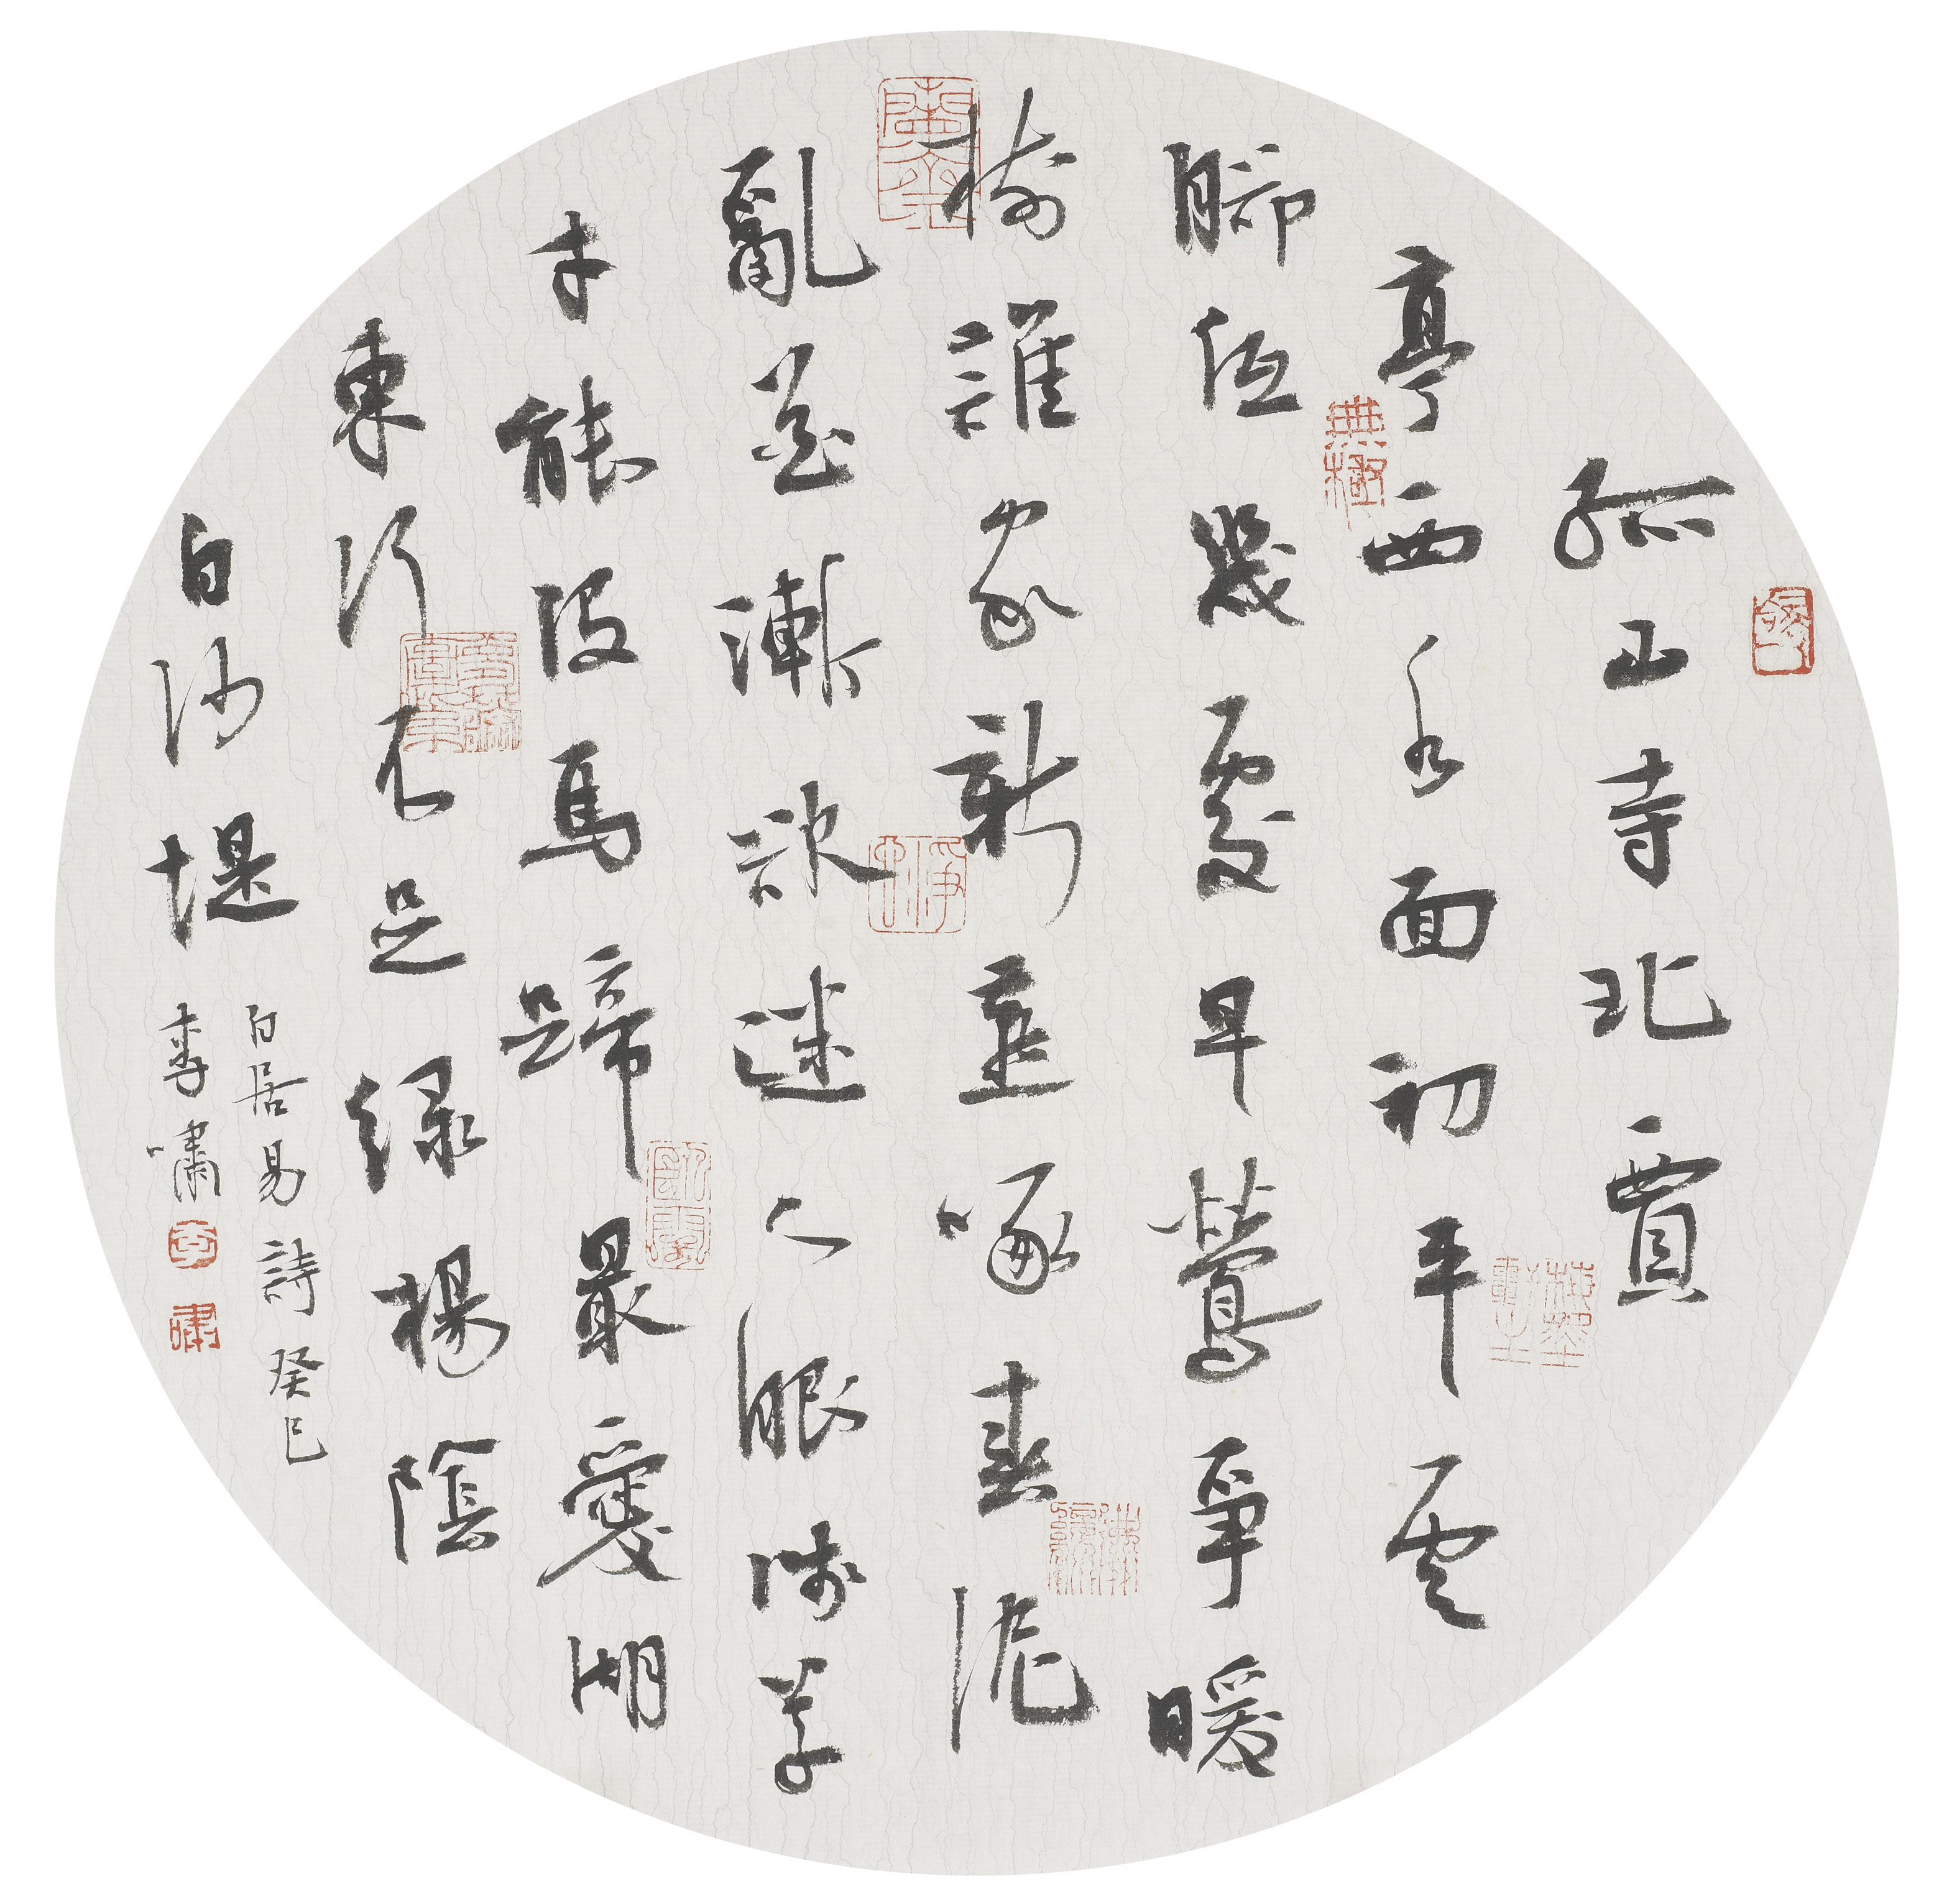 孤山寺北賈
亭西水面初平雲
腳低幾處早鶯爭暖
樹誰家新燕啄春泥
亂花漸欲迷人眼淺草
才能沒馬蹄最愛湖
東行不足綠楊陰
白沙堤
白居易詩癸巳
李嘯
無極
李
嘯